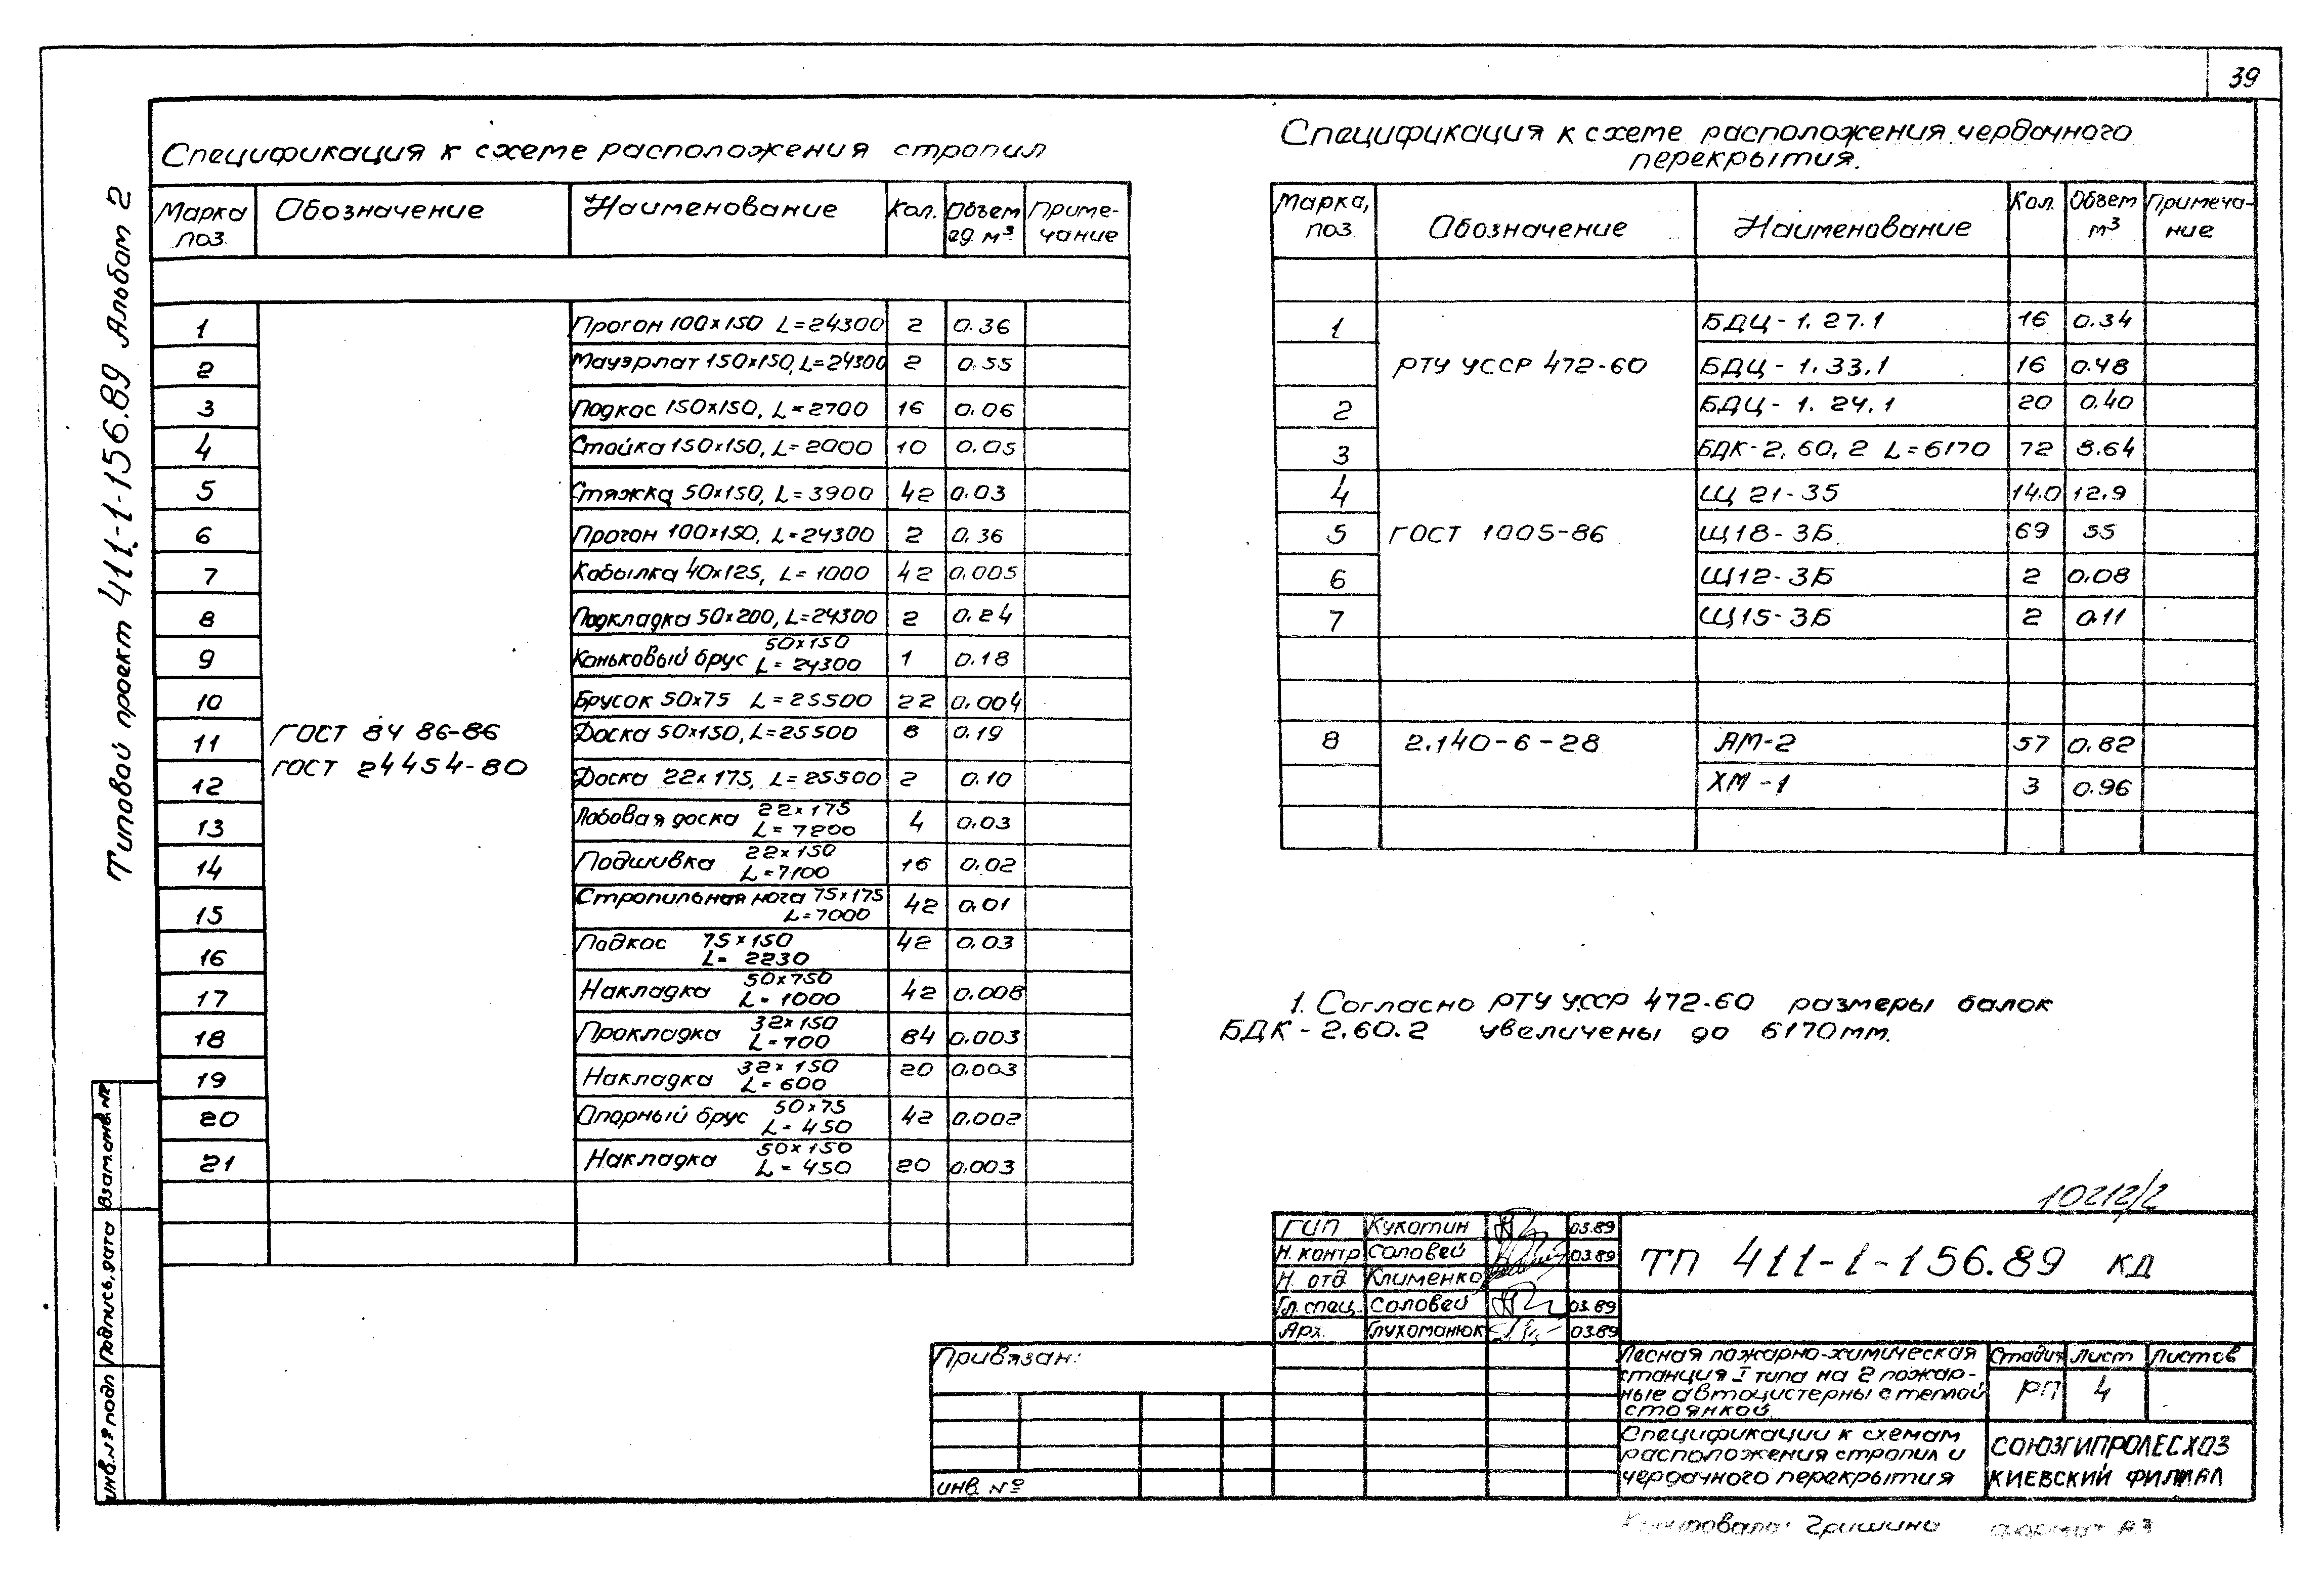 39
Типовой проект 411-1-156.89 Альбом 2
Спецификация к схеме расположения стропил
Марка поз. Обозначение Наименование Кол. Объем ед м³ Приме-чание
ГОСТ 8486-86
ГОСТ 24454-80
1 Прогон 100х150 L=24300 2 0.36
2 Мауэрлат 150х150, L=24300 2 0.55
3 Подкос 150х150, L=2700 16 0.06
4 Стойка 150х150, L=2000 10 0.05
5 Стяжка 50х150, L=3900 42 0.03
6 Прогон 100х150, L=24300 2 0.36
7 Кобылка 40х125, L=1000 42 0.005
8 Подкладка 50х200, L=24300 2 0.24
9 Коньковый брус 50х150 L=24300 1 0.18
10 Брусок 50х75 L=25500 22 0.004
11 Доска 50х150, L=25500 8 0.19
12 Доска 22х175, L=25500 2 0.10
13 Лобовая доска 22х175 L=7200 4 0.03
14 Подшивка 22х150 L=7100 16 0.02
15 Стропильная нога 75х175 L=7000 42 0.01
16 Подкос 75х150 L=2230 42 0.03
17 Накладка 50х750 L=1000 42 0.008
18 Прокладка 32х150 L=700 84 0.003
19 Накладка 32х150 L=600 20 0.003
20 Опорный брус 50х75 L=450 42 0.002
21 Накладка 50х150 L=450 20 0.003
Спецификация к схеме расположения чердачного
перекрытия.
Марка, поз. Обозначение Наименование Кол. Объем м³ Примеча-ние
1 БДЦ-1.27.1 16 0.34
РТУ УССР 472-60 БДЦ-1.33.1 16 0.48
2 БДЦ-1.24.1 20 0.40
3 БДК-2,60,2 L=6170 72 8.64
4 Щ 21-35 14.0 12.9
5 ГОСТ 1005-86 Щ18-3Б 69 55
6 Щ12-3Б 2 0.08
7 Щ15-3Б 2 0.11
8 2.140-6-28 АМ-2 57 0.82
ХМ-1 3 0.96
1. Согласно РТУ УССР 472-60 размеры балок
БДК-2.60.2 увеличены до 6170мм.
10212/2
ГИП Кукотин 03.89
Н. контр Соловей 03.89
Н. отд Клименко
Гл. спец. Соловей 03.89
Арх. Глухоманюк 03.89
ТП 411-1-156.89 КД
Привязан:
инв. №
Лесная пожарно-химическая
станция I типа на 2 пожар-
ные автоцистерны с теплой
стоянкой.
Стадия Лист Листов
РП 4
Спецификации к схемам
расположения стропил и
чердачного перекрытия
СОЮЗГИПРОЛЕСХОЗ
КИЕВСКИЙ ФИЛИАЛ
Взам.инв.№
Подпись, дата
инв.№ подп
Копировала: Гришина формат А3